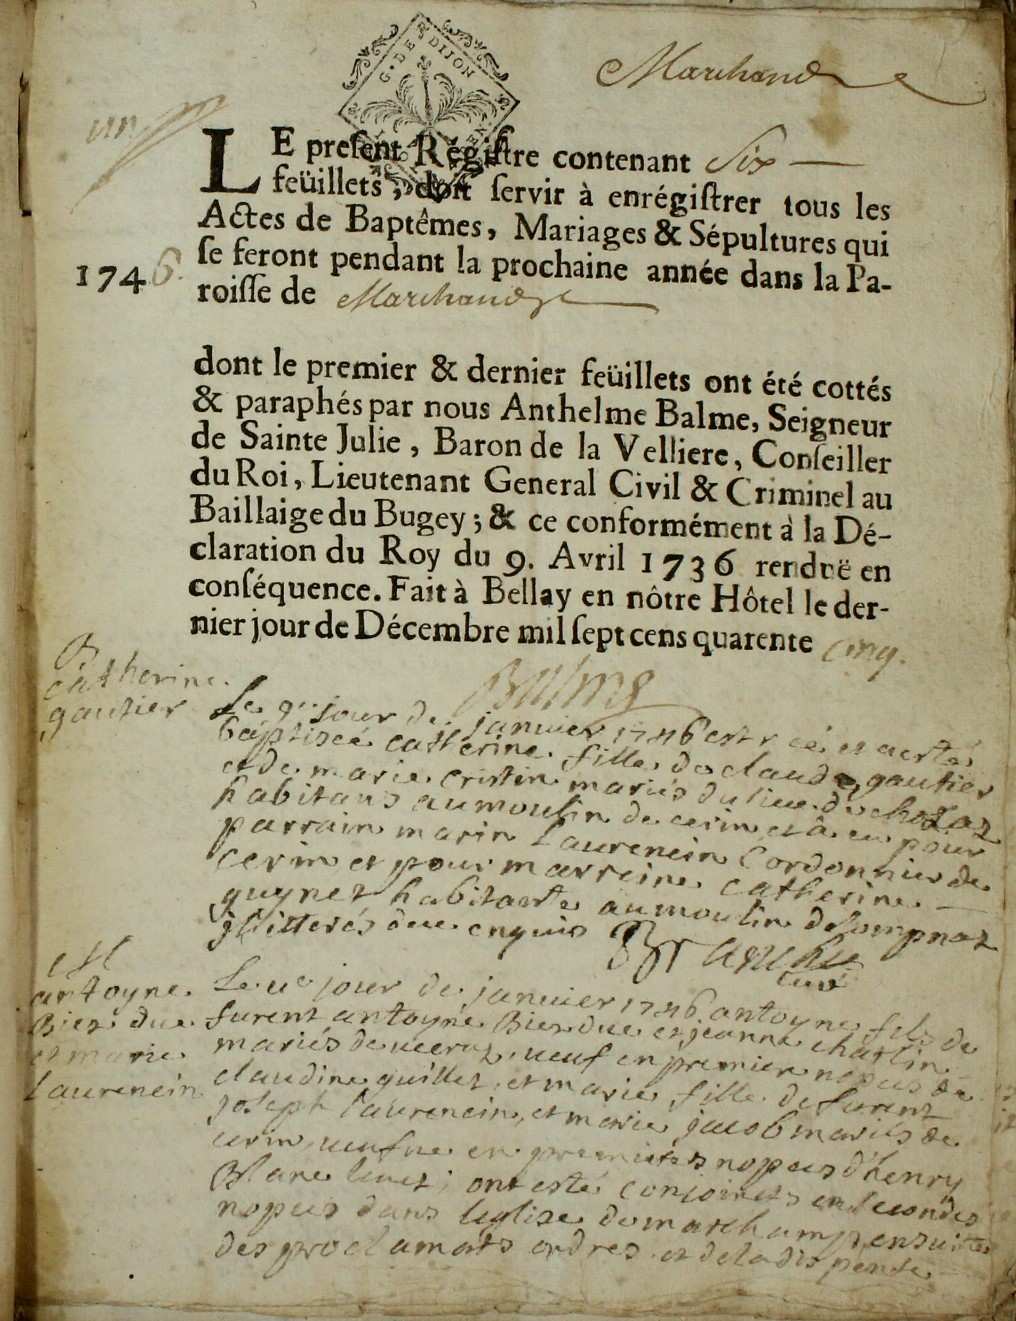 G. DE DIJON
Marchand
un
LE present Régistre contenant Six
feüillets, doit servir à enrégistrer tous les
Actes de Baptêmes, Mariages & Sépultures qui
se feront pendant la prochaine année dans la Pa-
1746.
roisse de Marchand
dont le premier & dernier feüillets ont été cottés
& paraphés par nous Anthelme Balme, Seigneur
de Sainte Julie, Baron de la Velliere, Conseiller
du Roi, Lieutenant General Civil & Criminel au
Baillaige du Bugey; & ce conformément à la Dé-
claration du Roy du 9. Avril 1736 renduë en
conséquence. Fait à Bellay en nôtre Hôtel le der-
nier jour de Décembre mil sept cens quarente cinq.
Balme
B
catherine
gautier
Le jour de janvier 1746 est née et a esté
baptisée catherine fille de claude gautier
et de marie cristin mariés du lieu de
habitans au moulin de cerin et a eu pour
parrain marin laurencin cordonnier de
cerin et pour marreine catherine
guynet habitante au moulin de
illiterés de ce enquis
curé
M
antoyne
Bier due
et marie
laurencin
Le jour de janvier 1746 antoyne fils de
furent antoyne Bier due et jeanne charlin
mariés de veuf en premier nopces de
claudine guillet, et marie fille de furent
joseph laurencin, et marie jacob mariés de
cerin, veufve en premieres nopces d'henry
Blanc ; ont esté conjoincts en secondes
nopces dans l'eglise de marchamp ensuitte
des proclamats ordres et de la dispense